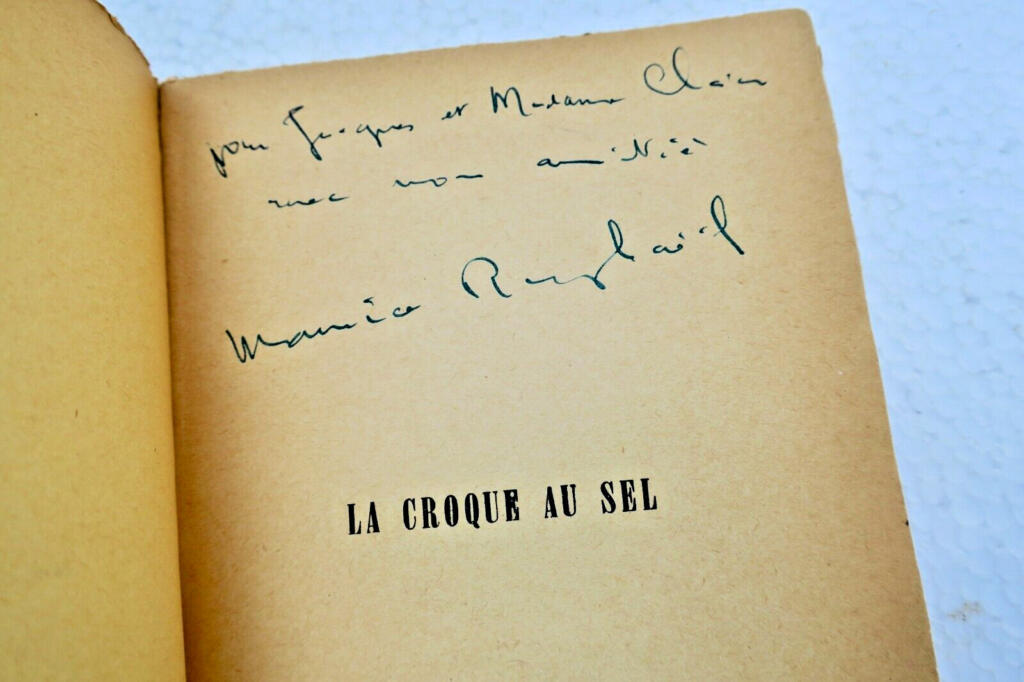 pour Jacques et Madame Clair
avec mon amitié
Maurice Raphaël
LA CROQUE AU SEL